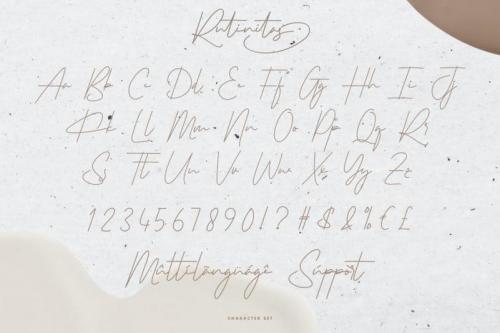 Rutinitas
Aa Bb Cc Dd Ee Ff Gg Hh Ii Jj
Kk Ll Mm Nn Oo Pp Qq Rr
Ss Tt Uu Vv Ww Xx Yy Zz
1234567890!?#$&%€£
Mûltîlāngüágê Súppôrt
CHARACTER SET